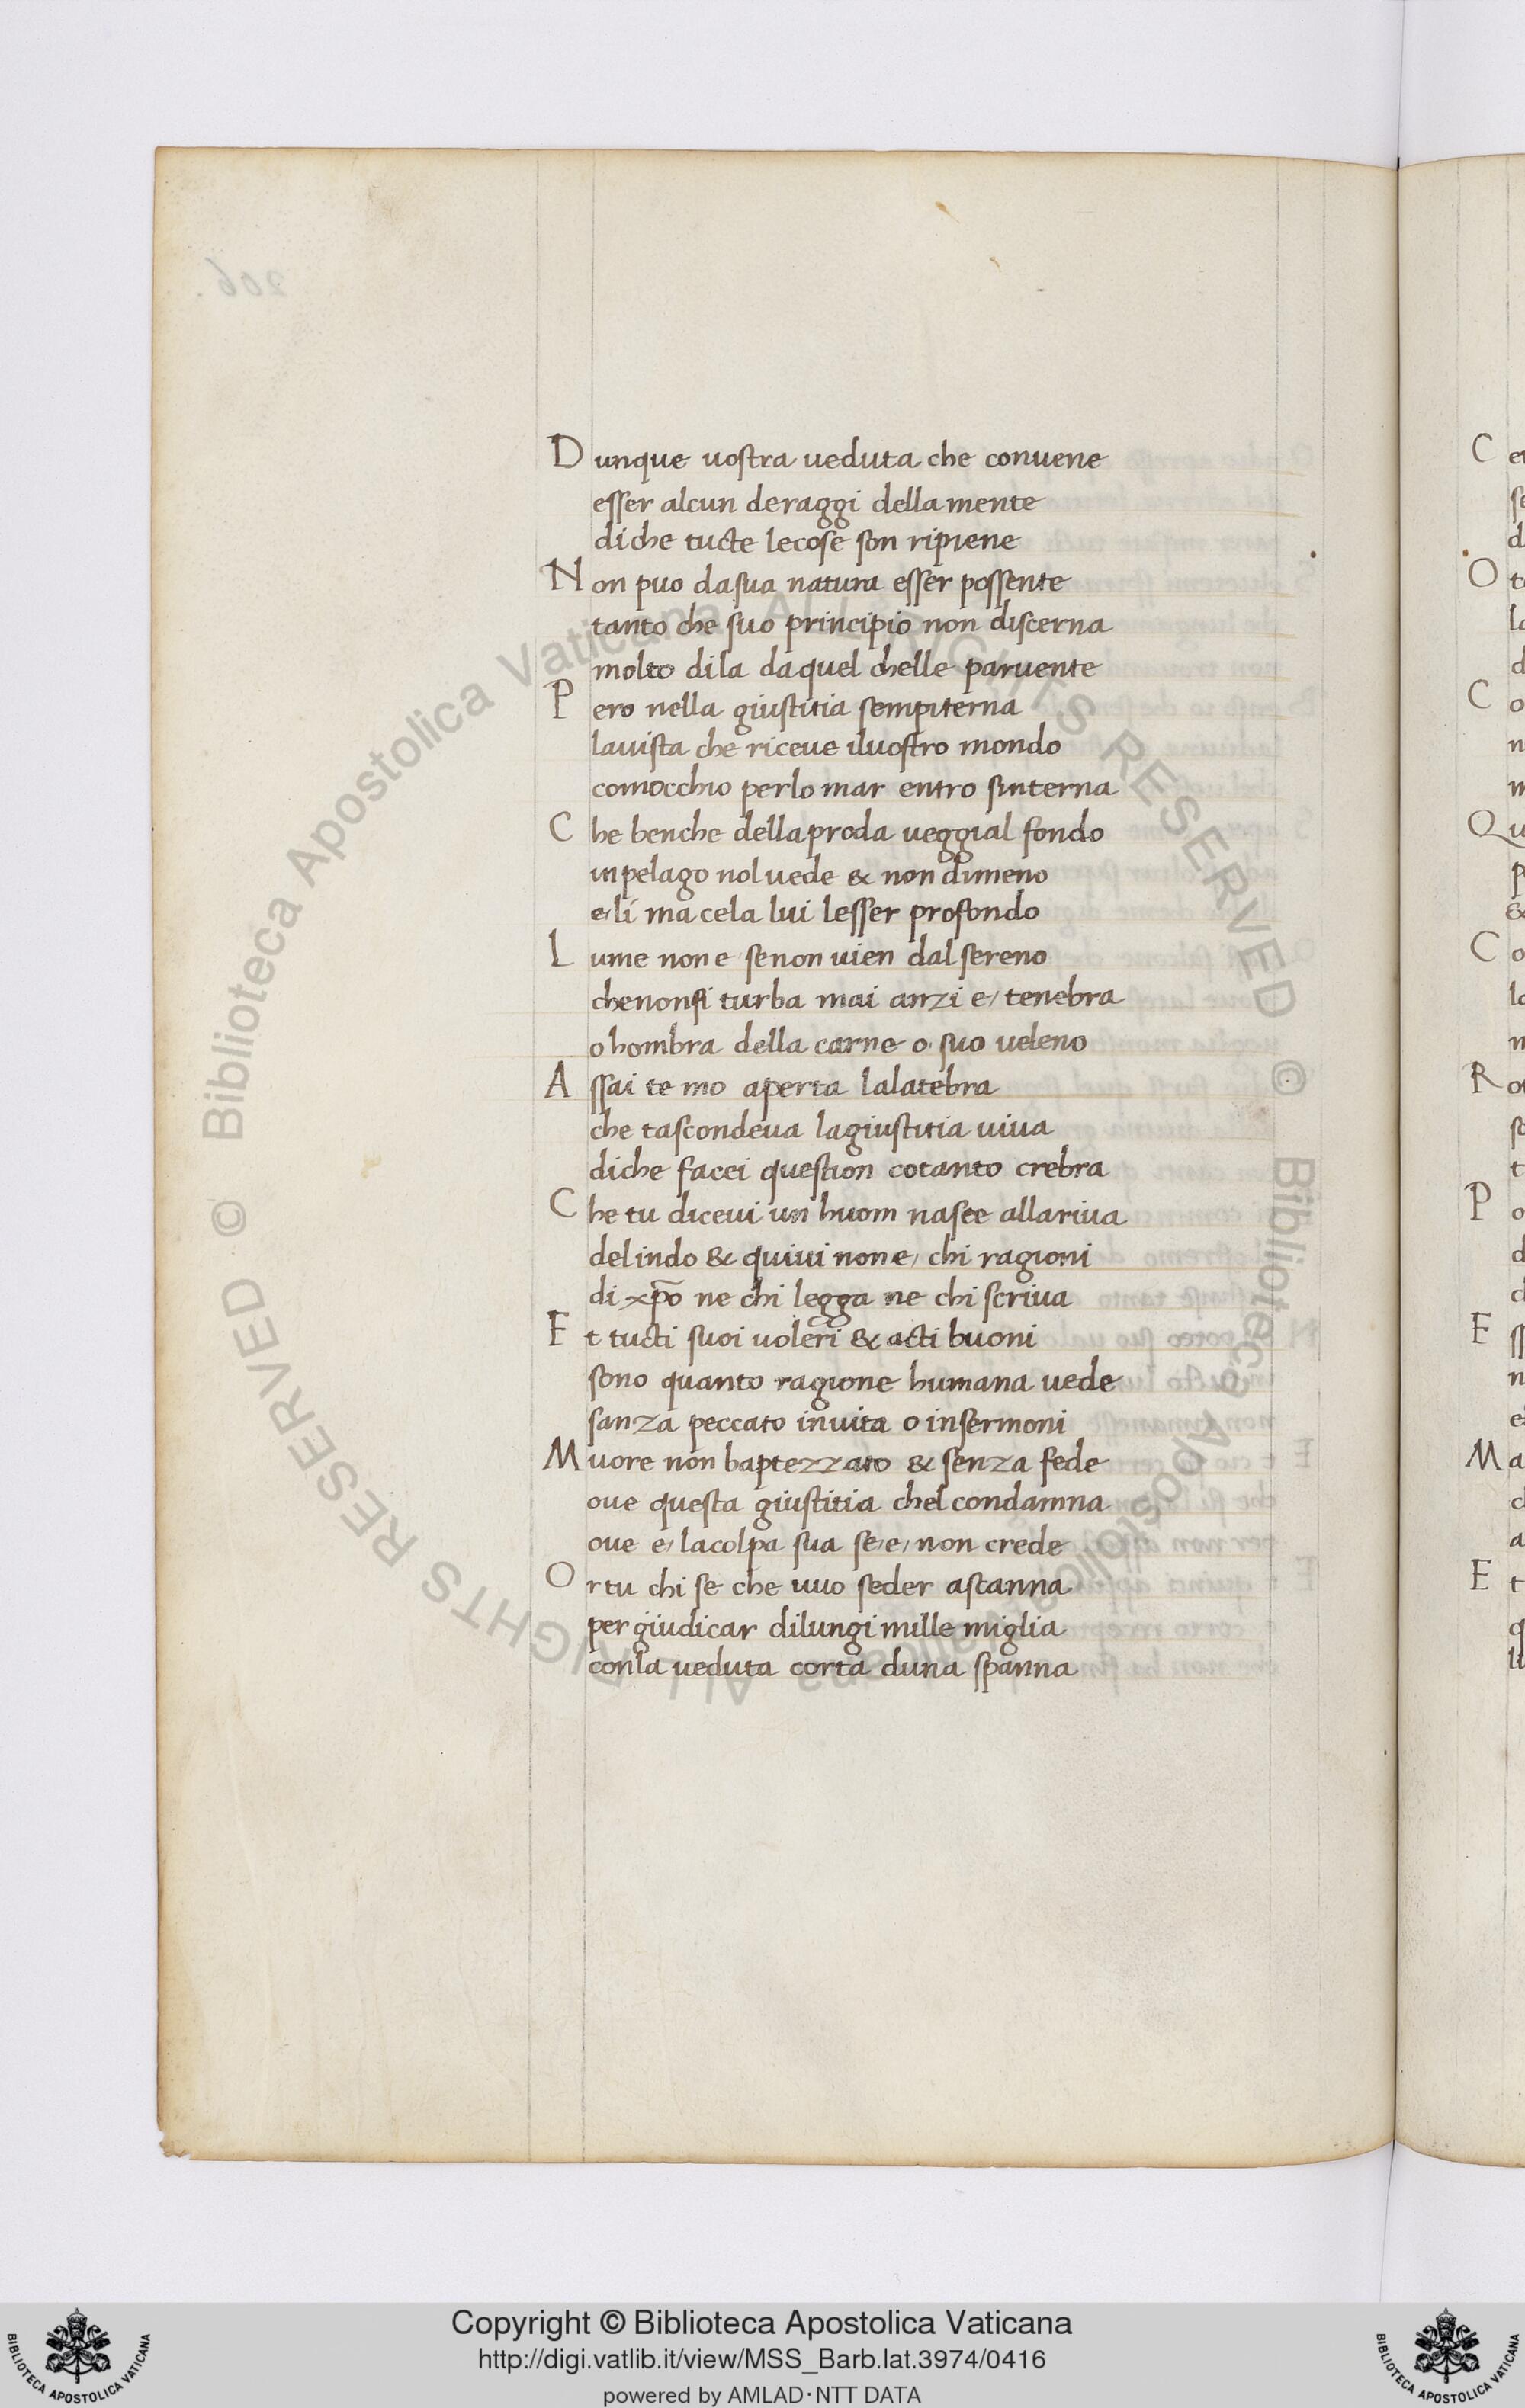 Dunque vostra veduta che convene
esser alcun deraggi dellamente
diche tucte lecose son ripiene
Non puo dasua natura esser possente
tanto che suo principio non discerna
molto dila daquel chelle parvente
Pero nella giustitia sempiterna
lauista che riceve iluostro mondo
comocchio perlo mar entro sinterna
Che benche dellaproda veggial fondo
inpelago noluede & non dimeno
e/ lí ma cela lui lesser profondo
Lume none senon uien dal sereno
chenonsi turba mai anzi e/ tenebra
o hombra della carne o suo veleno
Assai te mo aperta lalatebra
che tascondeva lagiustitia uiua
diche facei question cotanto crebra
Che tu diceui un huom nasce allariua
delindo & quiui none/ chi ragioni
di xp̄o ne chi legga ne chi scriua
Et tucti suoi uoleri & acti buoni
sono quanto ragione humana vede
sanza peccato inuita o insermoni
Muore non baptezzato & senza fede
oue questa giustitia chel condamna
oue e/ lacolpa sua se/ e/ non crede
Or tu chi se che vuo seder ascanna
per giudicar dilungi mille miglia
conla veduta corta duna spanna
206.
© Biblioteca Apostolica Vaticana ALL RIGHTS RESERVED © Biblioteca Apostolica Vaticana ALL RIGHTS RESERVED
Copyright © Biblioteca Apostolica Vaticana
http://digi.vatlib.it/view/MSS_Barb.lat.3974/0416
powered by AMLAD·NTT DATA
BIBLIOTECA APOSTOLICA VATICANA
BIBLIOTECA APOSTOLICA VATICANA